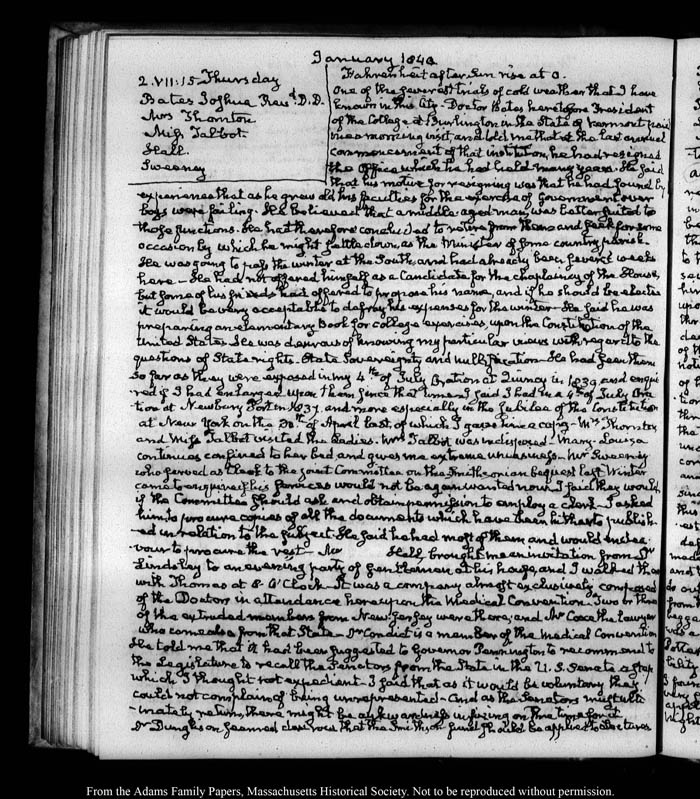 January 1840
2. VII:15. Thursday
Bates Joshua Revd. D.D.
Mrs Thornton
Miss Talbot.
Hall.
Sweeney
Fahrenheit after Sun rise at 0.
One of the severest trials of cold weather that I have
known in this City. Doctor Bates heretofore President
of the College at Burlington in the State of Vermont paid
me a morning visit, and told me that at the last annual
commencement of that institution, he had resigned
the Office which he had held many years. He said
that his motive for resigning was that he had found by
experience that as he grew old his faculties for the exercise of Government over
boys were failing. He believed that a middle aged man, was better suited to
those functions. He had therefore concluded to retire from them and seek for some
occasion by which he might settle down, as the Minister of some country parish.
He was going to pass the winter at the South, and had already been several weeks
here. He had not offered himself as a Candidate for the chaplaincy of the House,
but some of his friends had offered to propose his name, and if he should be elected
it would be very acceptable to defray his expenses for the winter. He said he was
preparing an elementary Book for college exercises, upon the Constitution of the
United States. He was desirous of knowing my particular views with regard to the
questions of State rights, State Sovereignty and nullification. He had seen them
so far as they were exposed in my 4th of July Oration at Quincy in 1831 and enqui
red if I had enlarged upon them since that time. I said I had in a 4th of July Ora
tion at Newbury Port in 1837. and more especially in the Jubilee of the Constitution
at New York on the 30th of April last, of which I gave him a copy. Mrs Thornton
and Miss Talbot visited the Ladies. Mrs Talbot was indisposed. Mary-Louisa
continues confined to her bed and gives me extreme uneasiness. Mr Sweeney
who served as Clerk to the joint Committee on the Smithsonian bequest last Winter
came to enquire if his services would not be again wanted now. I said they would
if the Committee should ask and obtain permission to employ a clerk. I asked
him to procure copies of all the documents which have been hitherto publish-
ed in relation to the subject. He said he had most of them and would endea-
vour to procure the rest. Mr Hall brought me an invitation from Dr
Lindsley to an evening party of gentlemen at his house, and I walked there
with Thomas at 8. O'Clock. It was a company almost exclusively composed
of the Doctors in attendance here upon the Medical Convention. Two or three
of the extruded members from New-Jersey were there, and Mr Coxe the lawyer
who comes also from that State. Dr Condict is a member of the Medical Convention
He told me that it had been suggested to Governor Pennington to recommend to
the Legislature to recall the Senators from the State in the U.S. Senate a step
which I thought not expedient. I said that as it would be voluntary they
could not complain of being unrepresented. And as the Senators must ulti
-mately return, there might be awkwardness in fixing on the time for it
Dr Dunglison seemed desirous that the Smithson fund should be applied to Lectures
From the Adams Family Papers, Massachusetts Historical Society. Not to be reproduced without permission.